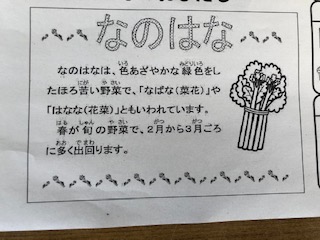 なのはな
なのはなは、色あざやかな緑色をし
たほろ苦い野菜で、「なばな(菜花)」や
「はなな(花菜)」ともいわれています。
春が旬の野菜で、2月から3月ごろ
に多く出回ります。